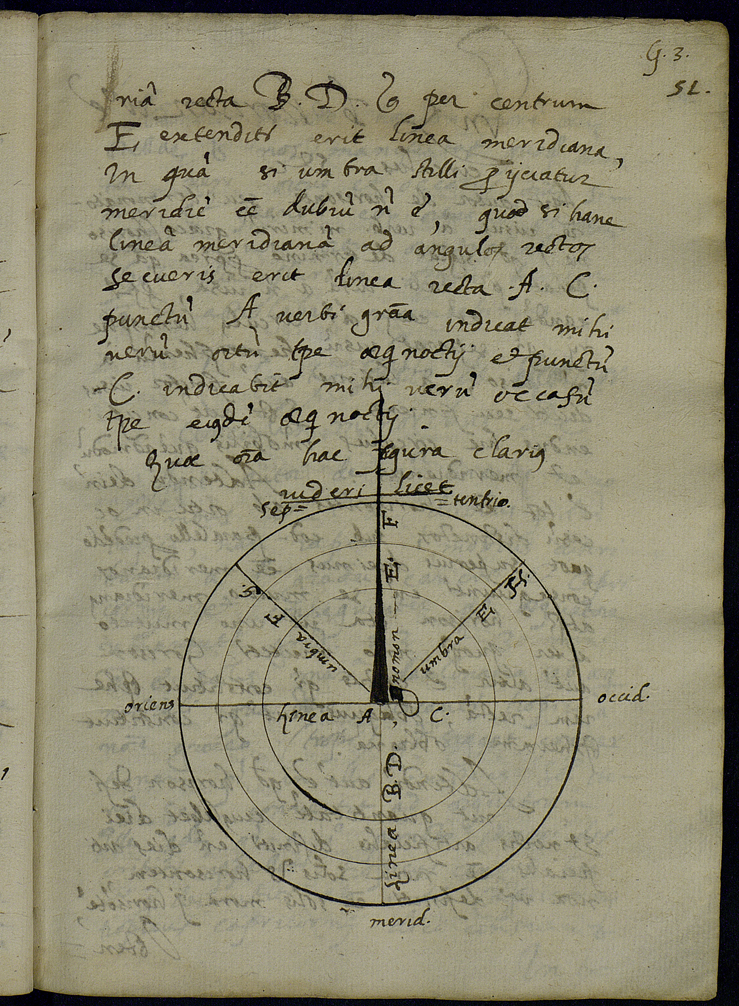 G. 3.
51.
riâ recta B. D. & per centrum
E, extenditr erit linea meridiana,
in quâ si umbra stilli proijciatur
meridiē ēē dubiū n̄ ē, quod si hanc
lineâ meridianâ ad angulos rectos
secueris erit linea recta A. C.
punctū A verbi grãa indicat mihi
verū ortū tpe æq̃noctij et punctū
C. indicabit mihi verū occasū
tpe eiusdē æq̃noctij.
Quæ oīa hac figura clarius
videri licet
sep= =tentrio.
F
E.
Gnomon
G.
F
umbra
H.
E,
umbra
oriens
occid.
Linea A C.
Linea B. D.
merid.